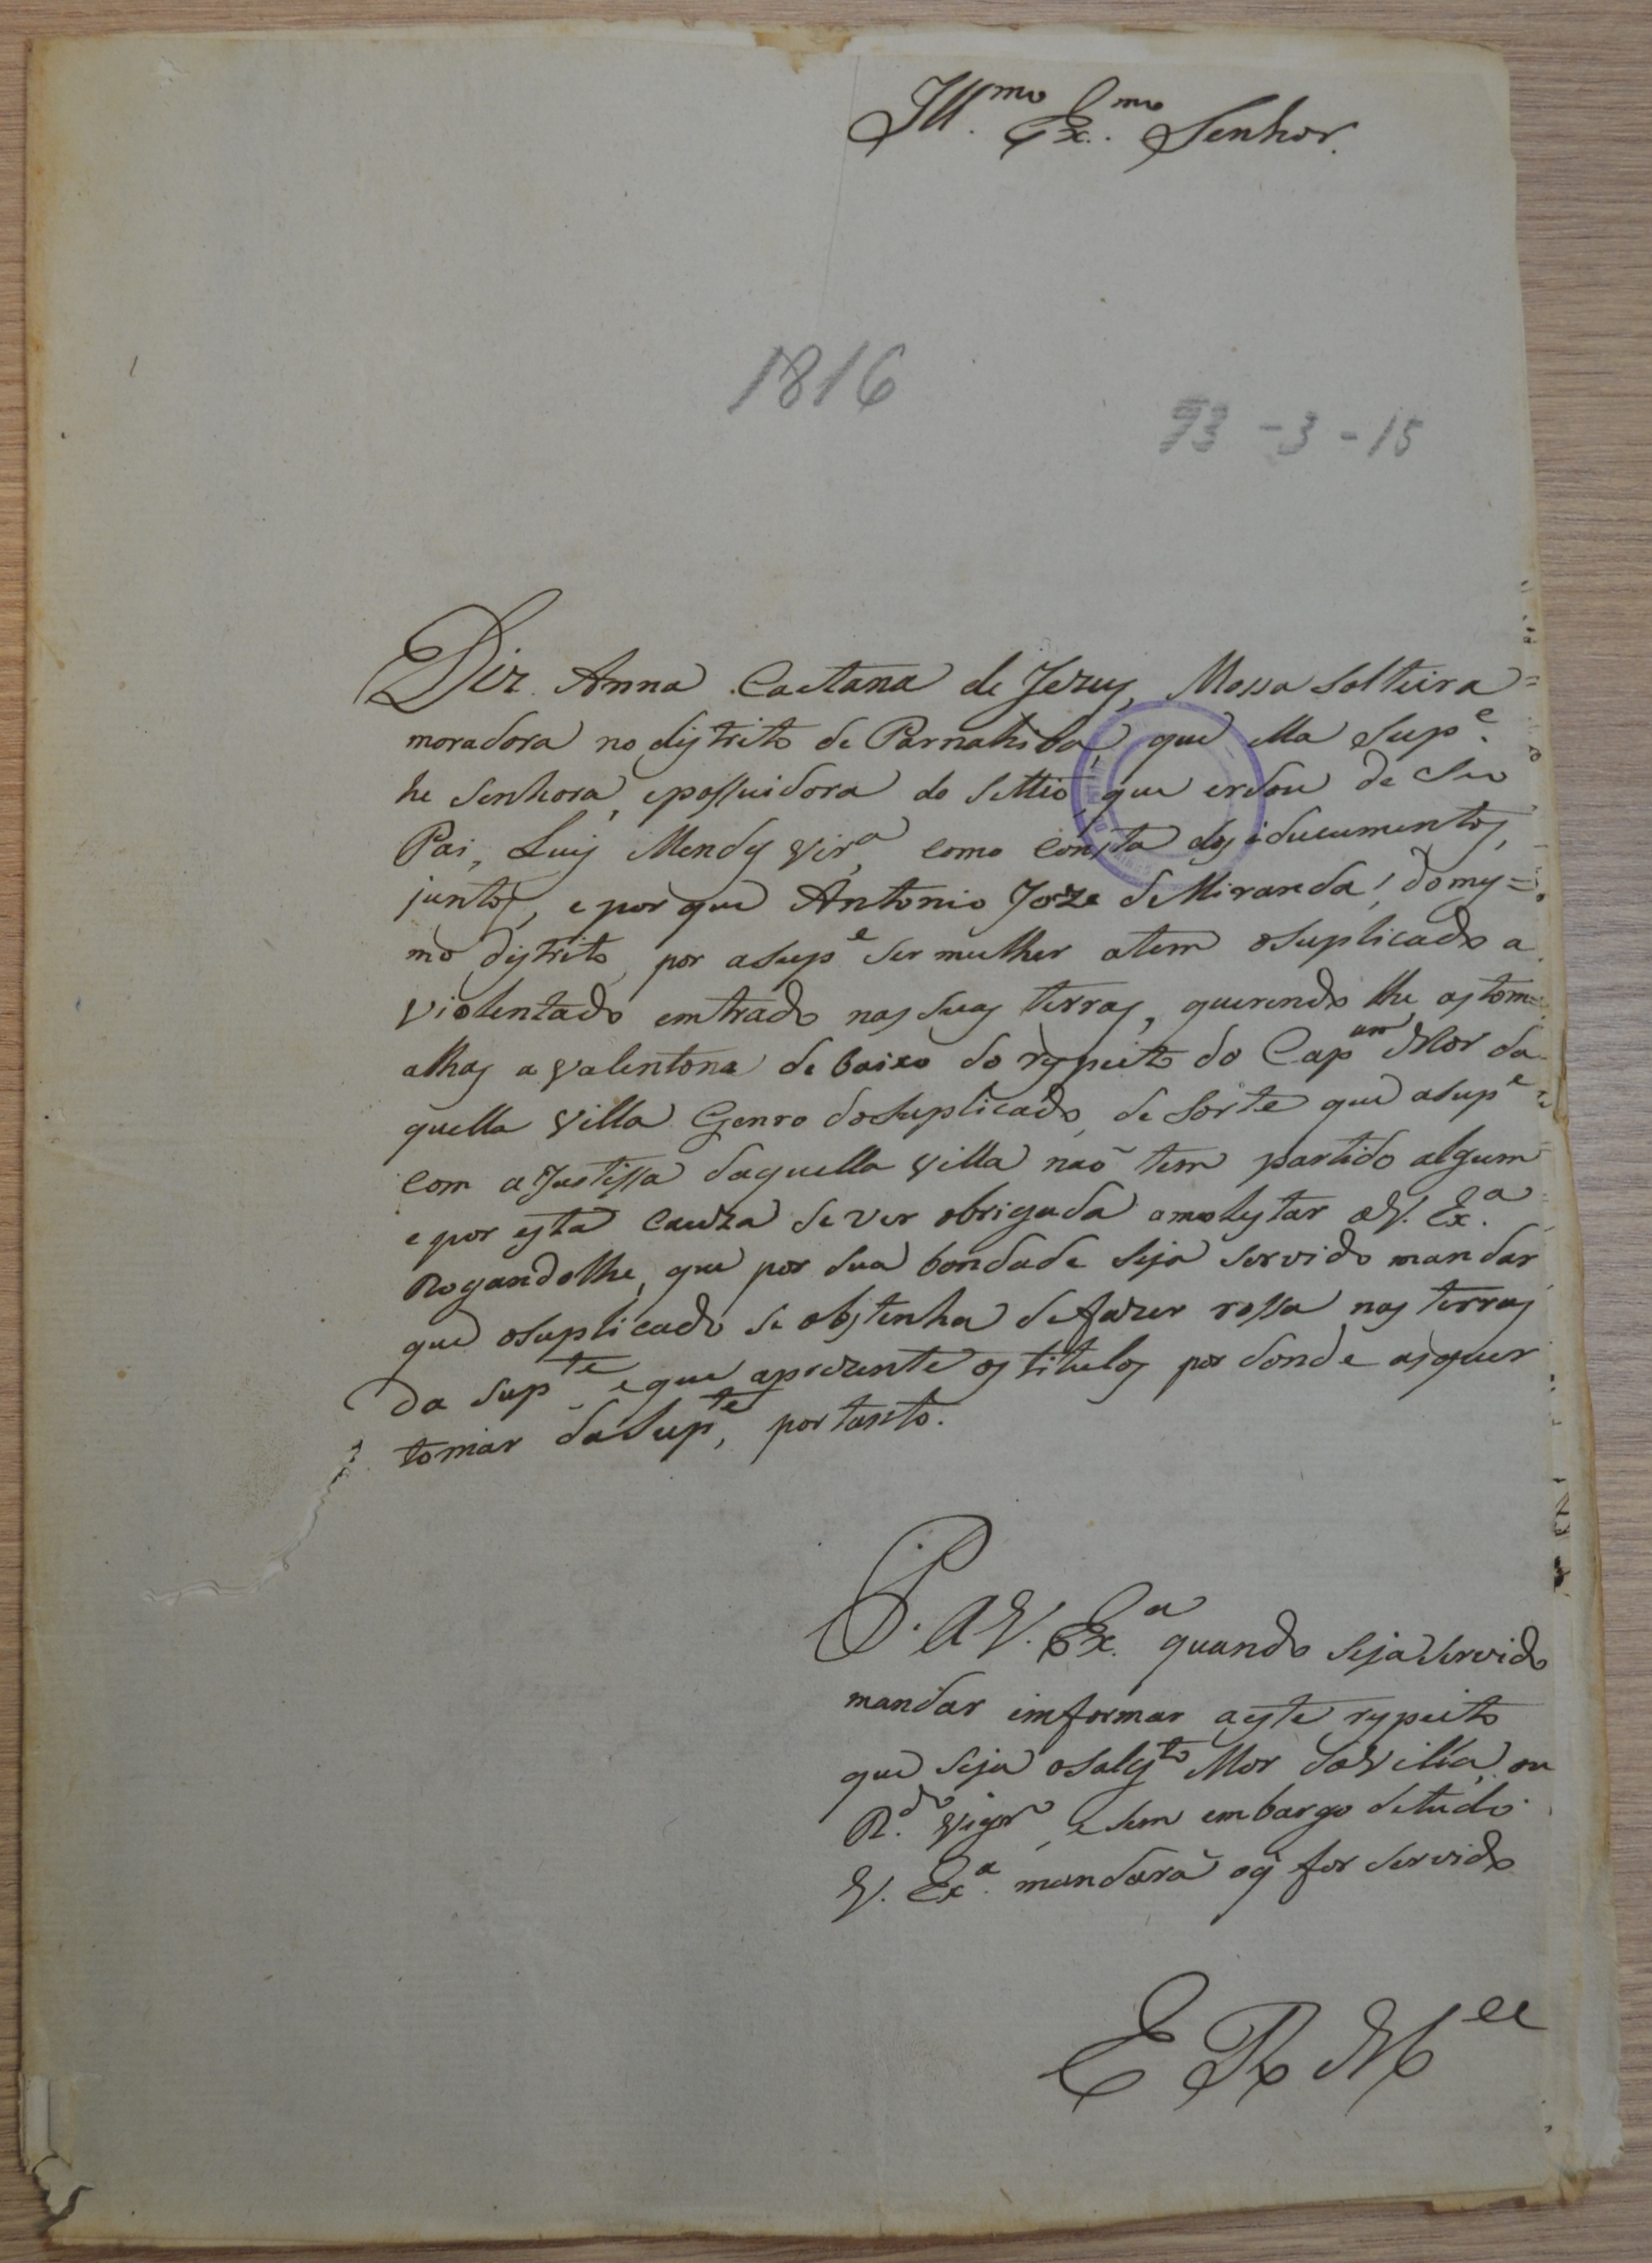 Ill.mo Ex.mo Senhor.
1816
93-3-15
Diz Anna Caetana de Jezus, Mossa Solteira
moradora no distrito de Parnahiba, que ella Sup.e
he Senhora, epossuidora do Sittio, que erdou de Seu
Pai, Luis Mendes Vir.a, como consta dos ducumentos,
juntos, e por que Antonio Joze de Miranda, do mes=
mo distrito, por aSup.e Ser mulher atem oSuplicado a
violentado emtrado nas Suas terras, querendo lhe astom=
alhas a valentona de baixo do respeito do Cap.am Mor da
quella Villa Genro doSuplicado, de Sorte que aSup.e
com aJustissa daquella Villa naõ tem partido algum
e por esta cauza se ver obrigada amolestar aV. Ex.a
Rogandolhe, que por Sua bondade Seja Servido mandar
que oSuplicado Se obstenha defazer rossa nas terras
da Sup.te e que aprezente os titulos por donde asquer
tomar daSup.te, portanto.
P. AV. Ex.a quando SejaServido
mandar imformar aeste respeito
que Seja oSalg.to Mor daVilla, ou
R.do Vigr.o, e Sem embargo detudo
V. Ex.a mandará oq̃ for Servido
E R M.ce